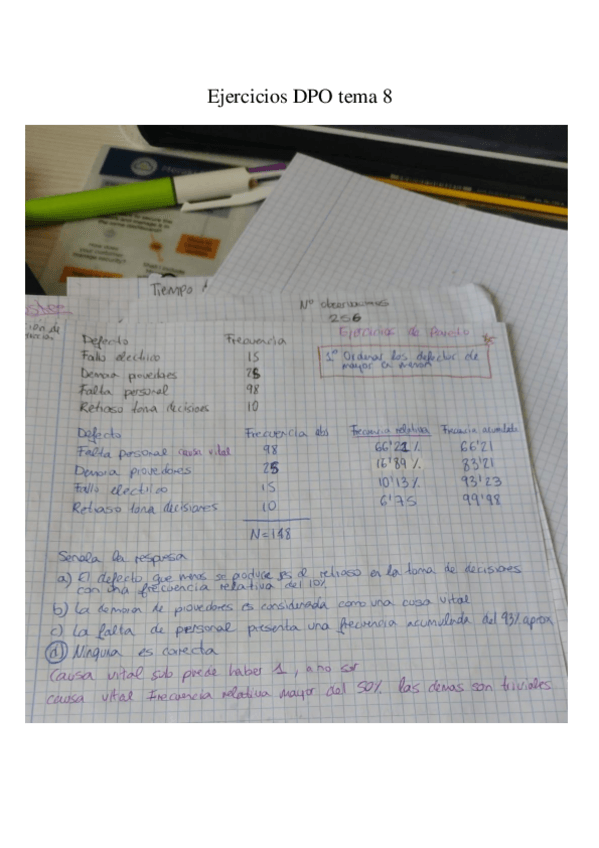 Ejercicios DPO tema 8
Tiempo
Nº observaciones
256
Ejercicios de Pareto
1º Ordenar los defectos de
mayor a menor
Defecto Frecuencia
Fallo electrico 15
Demora provedores 25
Falta personal 98
Retraso toma decisiones 10
Defecto Frecuencia abs Frecuencia relativa Frecuencia acumulada
Falta personal causa vital 98 66'21% 66'21
Demora provedores 25 16'89% 83'21
Fallo electrico 15 10'13% 93'23
Retraso toma decisiones 10 6'75 99'98
N=148
Senala la respuesta
a) El defecto que menos se produce es el retraso en la toma de decisiones
con una frecuencia relativa del 10%
b) La demora de provedores es considerada como una causa vital
c) La falta de personal presenta una frecuencia acumulada del 93% aprox
d) Ninguna es correcta
Causa vital solo puede haber 1, a no ser
causa vital frecuencia relativa mayor del 50% las demas son triviales